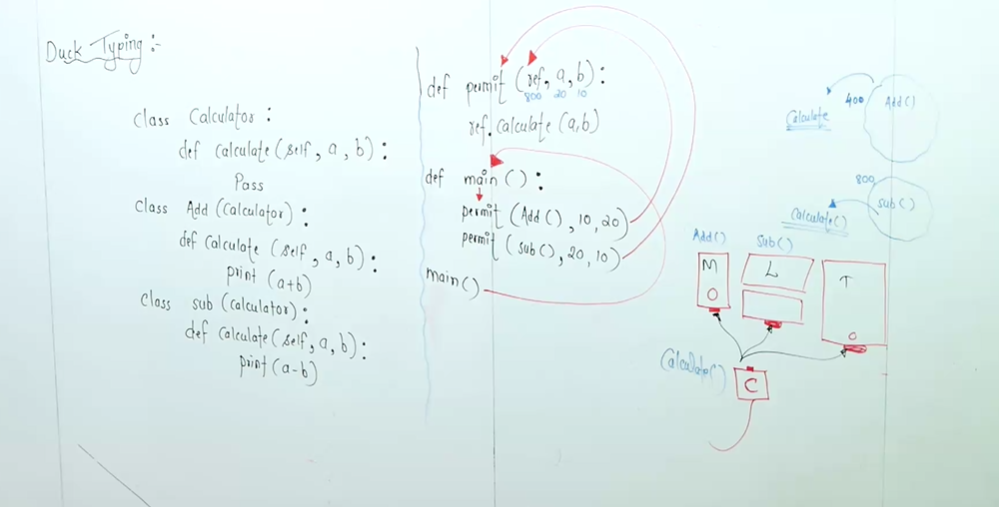 Duck Typing :-
class Calculator :
def calculate (self, a, b) :
Pass
class Add (Calculator) :
def Calculate (self, a, b) :
print (a+b)
class sub (calculator) :
def calculate (self, a, b) :
print (a-b)
def permit (ref, a, b) :
800 20 10
ref. calculate (a,b)
def main () :
permit (Add(), 10, 20)
permit (sub(), 20, 10)
main()
400 Add()
Calculate
800
sub()
Calculate()
Add() Sub()
M L T
Calculate()
C